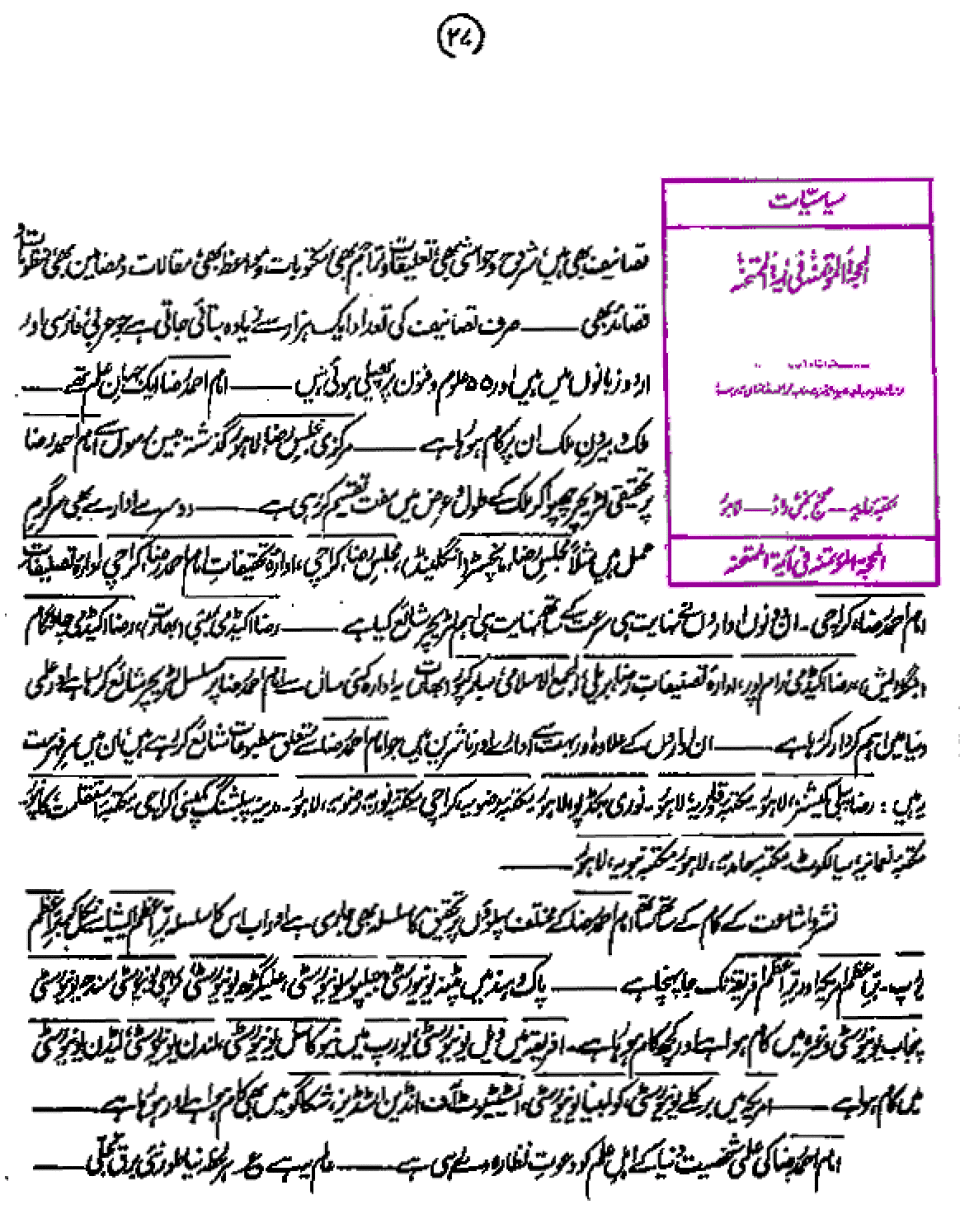 ۲۷
سیاسیّات
المحجۃ المؤتمنہ فی آیۃ الممتحنہ
مکتبہ حامدیہ — گنج بخش روڈ — لاہور
المحجۃ المؤتمنہ فی آیۃ الممتحنہ
تصانیف بھی ہیں، شروح و حواشی بھی، تعلیقات و تراجم بھی، مکتوبات و مواعظ بھی، مقالات و مضامین بھی، منظومات و
قصائد بھی —— صرف تصانیف کی تعداد ایک ہزار سے زیادہ بتائی جاتی ہے جو عربی فارسی اور
اردو زبانوں میں ہیں اور ۵۵ علوم و فنون پر پھیلی ہوئی ہیں —— امام احمد رضا ایک جہانِ علم تھے ——
ملک و بیرونِ ملک ان پر کام ہو رہا ہے —— مرکزی مجلسِ رضا، لاہور گذشتہ بیس برسوں سے امام احمد رضا
پر تحقیقی لٹریچر چھپوا کر ملک کے طول و عرض میں مفت تقسیم کر رہی ہے —— دوسرے ادارے بھی سرگرمِ
عمل ہیں مثلاً مجلسِ رضا، مانچسٹر (انگلینڈ)، مجلسِ رضا، کراچی، ادارۂ تحقیقاتِ امام احمد رضا، کراچی، ادارۂ تصنیفاتِ
امام احمد رضا، کراچی۔ ان دونوں اداروں نے نہایت ہی سرعت کے ساتھ نہایت ہی اہم لٹریچر شائع کیا ہے —— رضا اکیڈمی، بمبئی (بھارت)، رضا اکیڈمی، چاٹگام
(بنگلہ دیش)، رضا اکیڈمی، رام پور، ادارۂ تصنیفاتِ رضا، بریلی، المجمع الاسلامی، مبارکپور (بھارت) یہ ادارہ کئی سال سے امام احمد رضا پر مسلسل لٹریچر شائع کر رہا ہے اور علمی
دنیا میں اہم کردار کر رہا ہے —— ان اداروں کے علاوہ اور بہت سے ادارے اور ناشرین ہیں جو امام احمد رضا سے متعلق مطبوعات شائع کر رہے ہیں، ان میں سرِفہرست
یہ ہیں : رضا پبلی کیشنز، لاہور، مکتبہ قادریہ، لاہور۔ نوری بکڈپو، لاہور، مکتبہ رضویہ، کراچی، مکتبہ نوریہ رضویہ، لاہور۔ مدینہ پبلشنگ کمپنی، کراچی، مکتبہ
مکتبہ نعمانیہ، سیالکوٹ۔ مکتبہ حامدیہ، لاہور، مکتبہ نبویہ، لاہور ——
نشر و اشاعت کے کام کے ساتھ ساتھ امام احمد رضا کے مختلف پہلوؤں پر تحقیق کا سلسلہ بھی جاری ہے اور اب اس کا سلسلہ برِّ اعظم ایشیا سے نکل کر برِّ اعظم
یورپ۔ برِّ اعظم امریکہ اور برِّ اعظم افریقہ تک جا پہنچا ہے —— پاک و ہند میں پٹنہ یونیورسٹی، جبلپور یونیورسٹی، علیگڑھ یونیورسٹی، کراچی یونیورسٹی، سندھ یونیورسٹی
پنجاب یونیورسٹی وغیرہ میں کام ہوا ہے اور کچھ کام ہو رہا ہے۔ افریقہ میں ڈربن یونیورسٹی، یورپ میں نیو کاسل یونیورسٹی، لندن یونیورسٹی، لیڈن یونیورسٹی
میں کام ہوا ہے —— امریکہ میں برکلے یونیورسٹی، کولمبیا یونیورسٹی، انسٹیٹیوٹ آف انڈین اسٹڈیز، شکاگو میں بھی کام ہوا ہے اور ہو رہا ہے ——
امام احمد رضا کی علمی شخصیت دنیا کے اہلِ علم کو دعوتِ نظارہ دے رہی ہے —— عالم یہ ہے ع ہر لحظہ نیا طور نئی برقِ تجلی ——